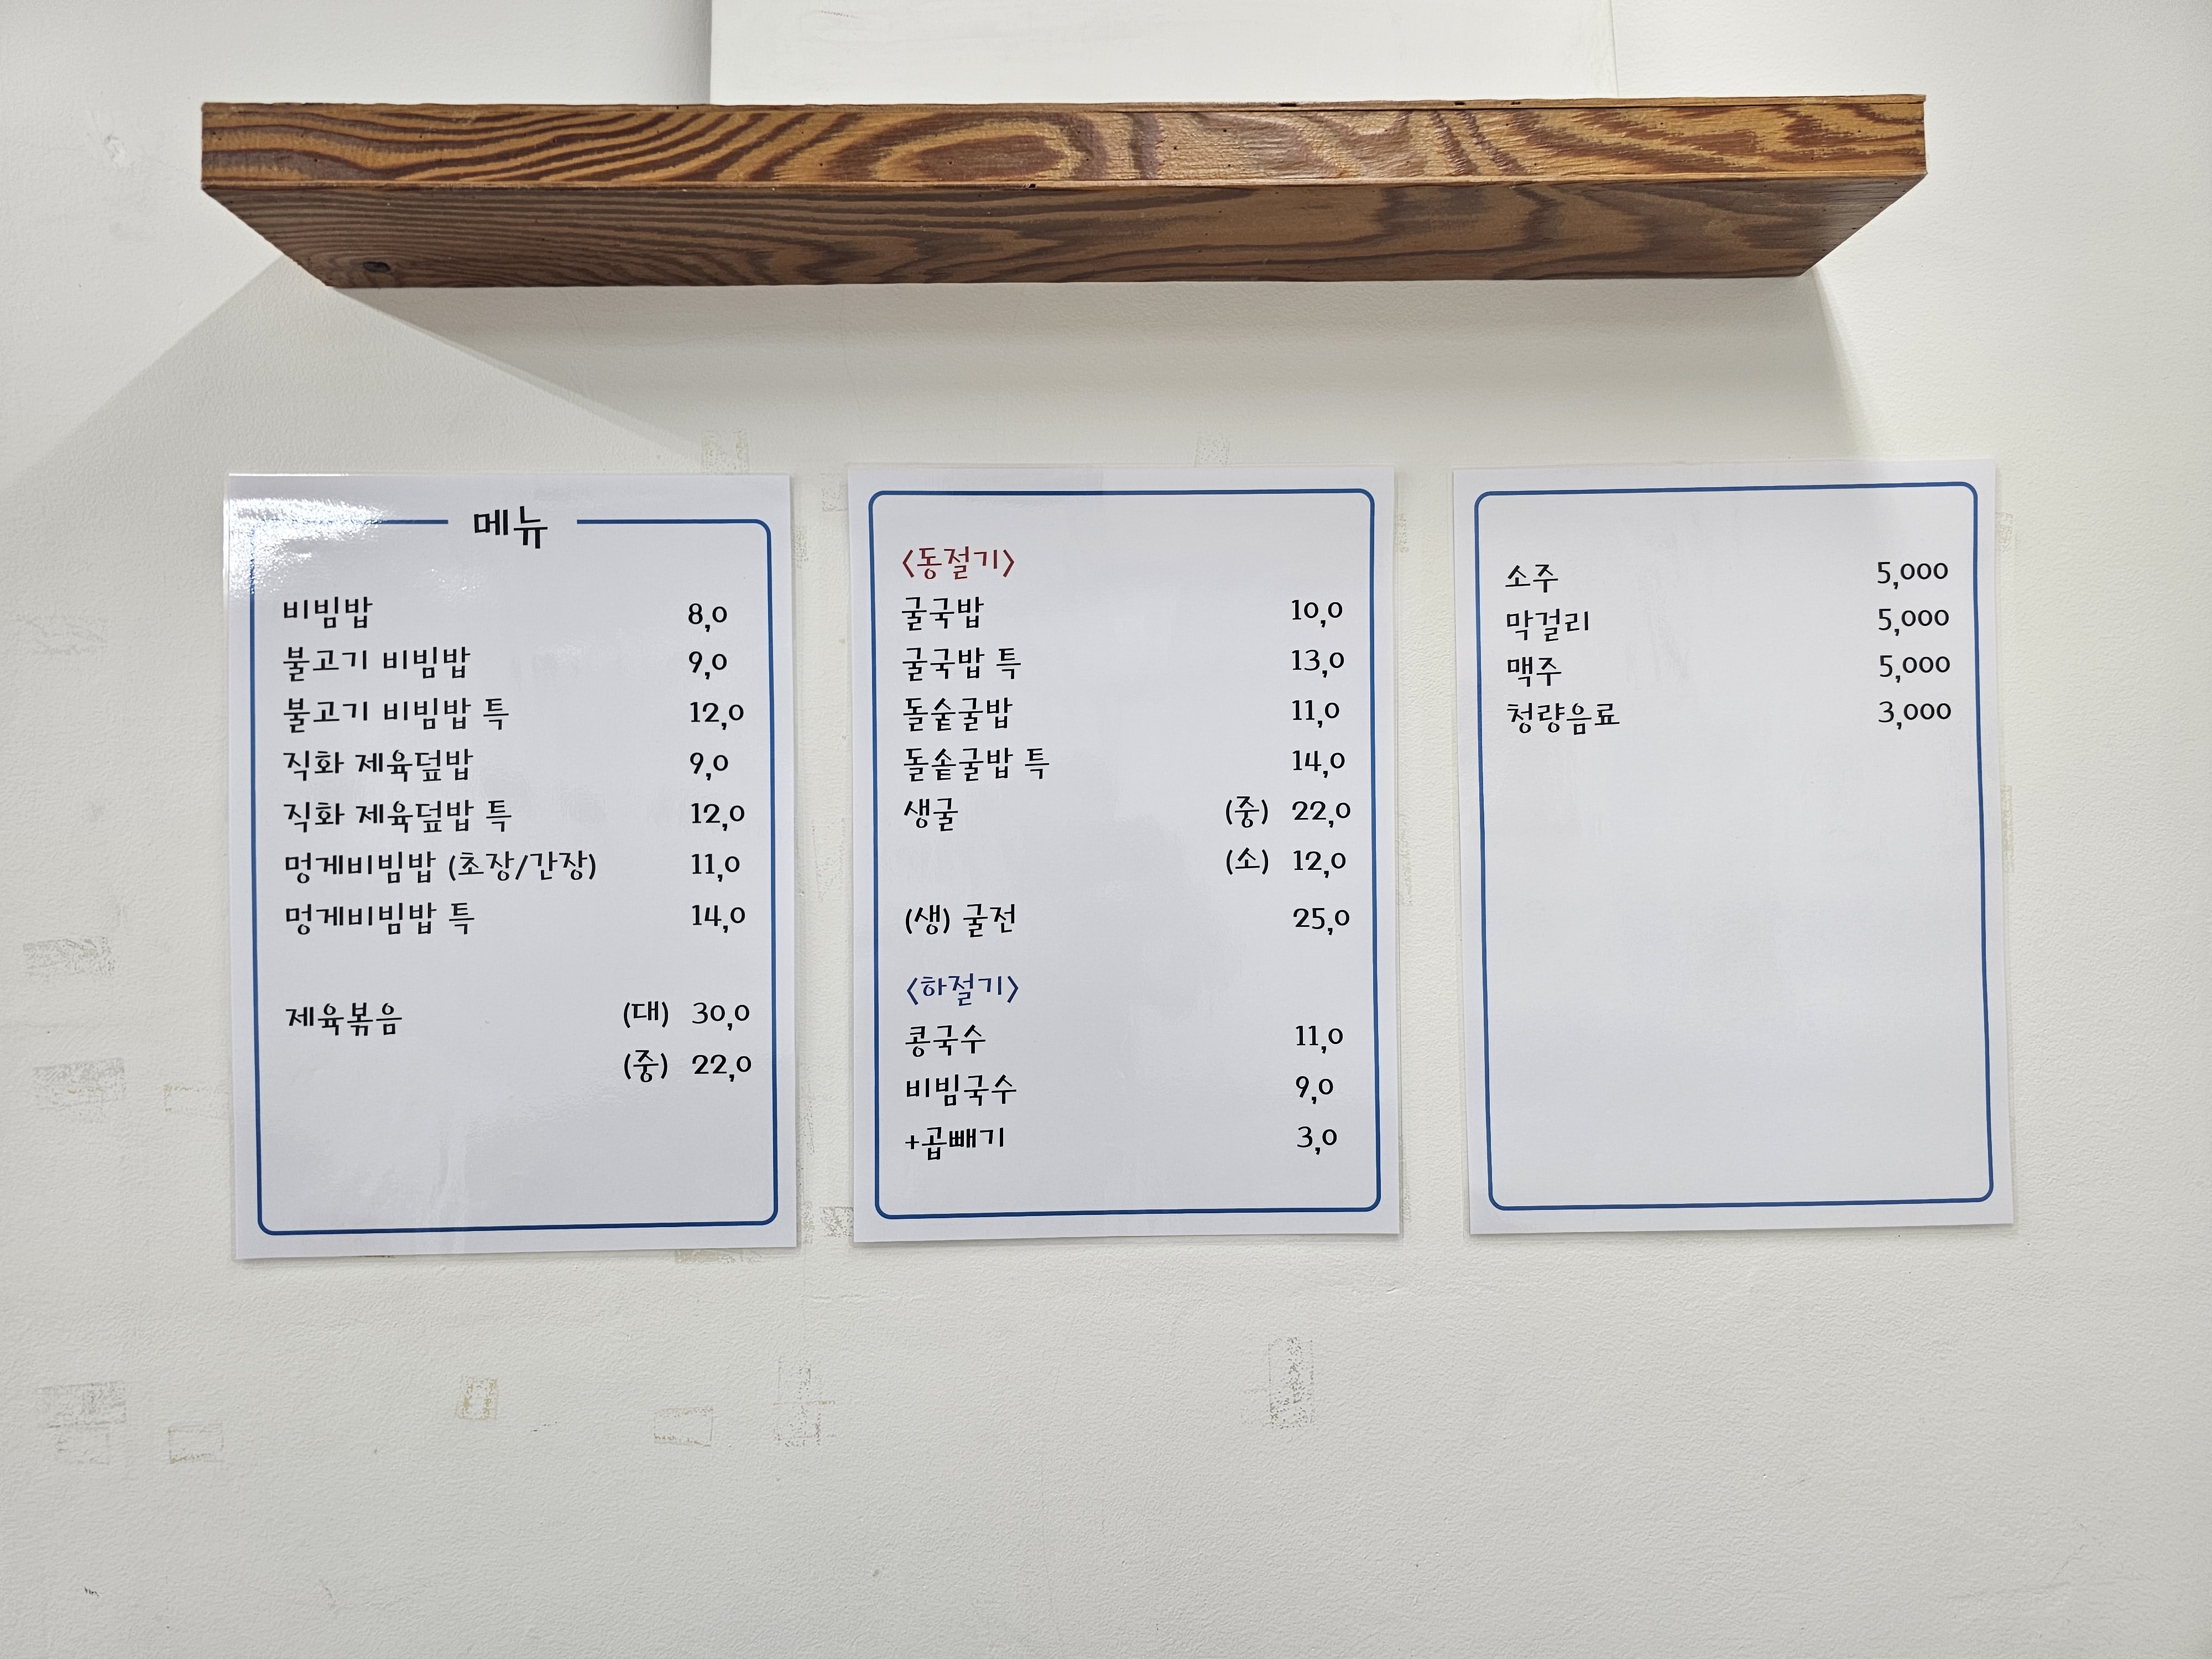 메뉴
비빔밥 8,0
불고기 비빔밥 9,0
불고기 비빔밥 특 12,0
직화 제육덮밥 9,0
직화 제육덮밥 특 12,0
멍게비빔밥 (초장/간장) 11,0
멍게비빔밥 특 14,0
제육볶음 (대) 30,0
(중) 22,0
<동절기>
굴국밥 10,0
굴국밥 특 13,0
돌솥굴밥 11,0
돌솥굴밥 특 14,0
생굴 (중) 22,0
(소) 12,0
(생) 굴전 25,0
<하절기>
콩국수 11,0
비빔국수 9,0
+곱빼기 3,0
소주 5,000
막걸리 5,000
맥주 5,000
청량음료 3,000